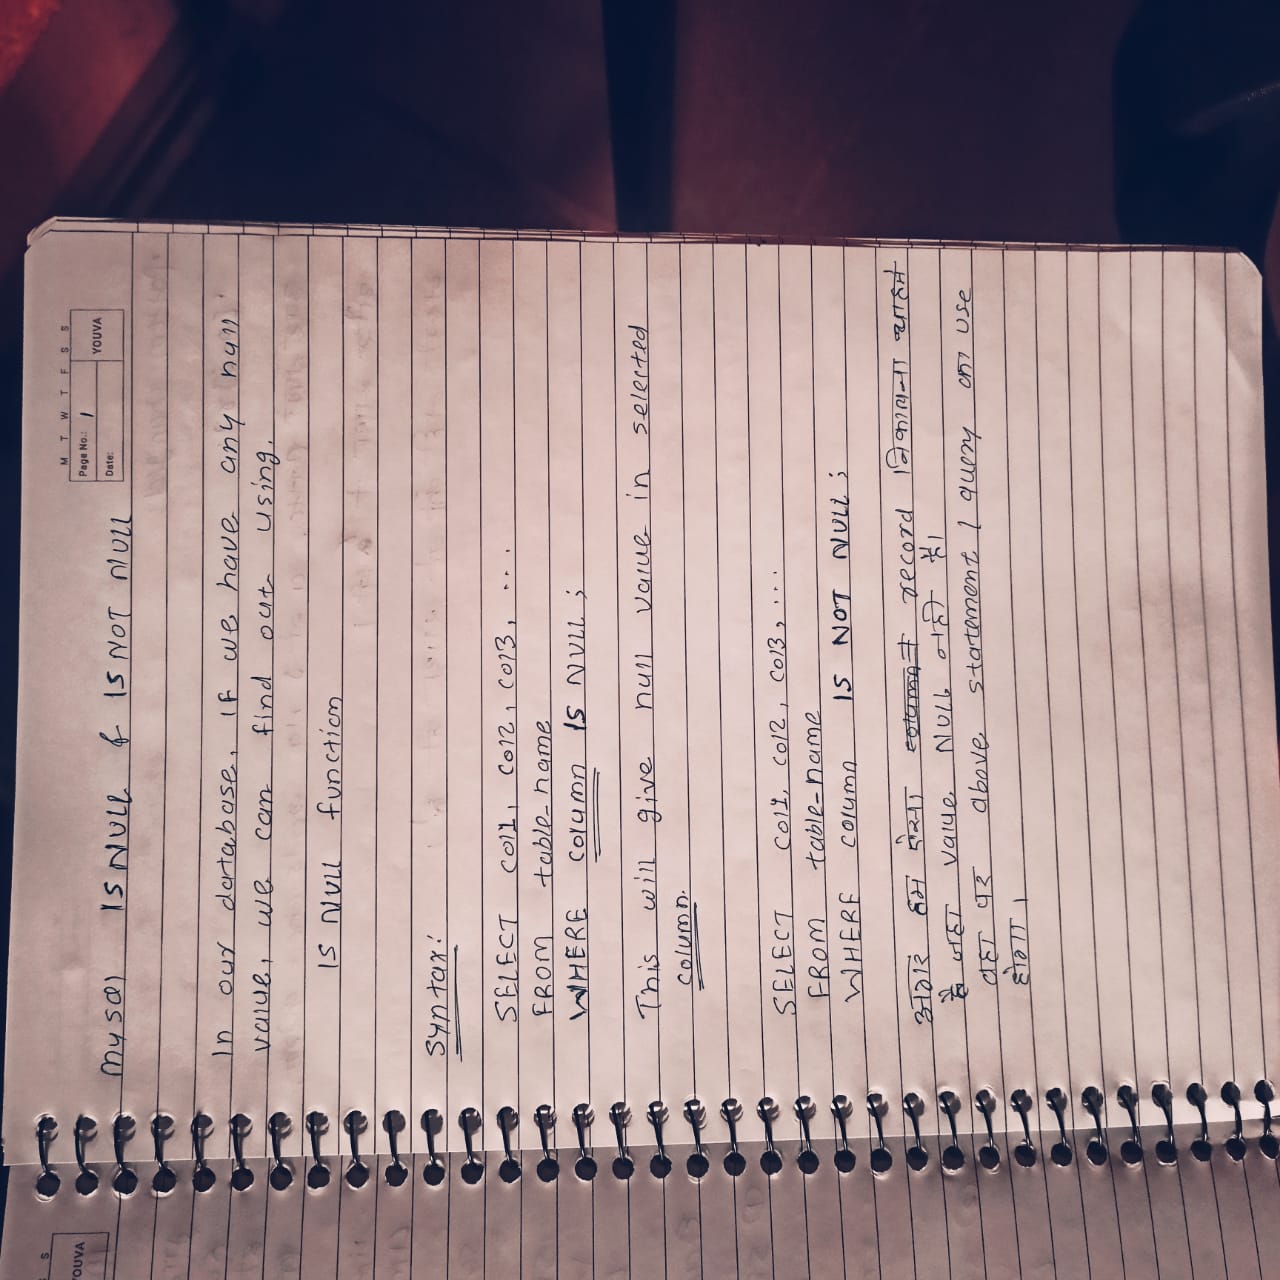 M T W T F S S
Page No.: 1
Date:
YOUVA
mysql IS NULL & IS NOT NULL
In our database, if we have any null
value, we can find out using.
IS NULL function
Syntax:
SELECT col1, col2, col3, ...
FROM table_name
WHERE column IS NULL ;
This will give null value in selected
column.
SELECT col1, col2, col3, ...
FROM table_name
WHERE column IS NOT NULL ;
अगर हम ऐसा record निकालना चाहते
है जहा value NULL नही है।
वहा पर above statement / query का use
होगा।
S
YOUVA